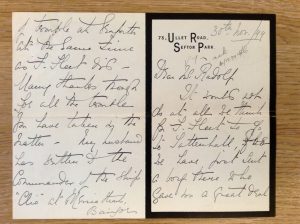 75, ULLET ROAD,
SEFTON PARK
30th Nov /99
Dear Mr Rudolf
It would not
do at all, I think
for F. Fleet to go
to Tattenhall,
We have just sent
a boy there who
gave us a great deal
of trouble at
at the same time
as F. Fleet did -
Many thanks though
for all the trouble
you have taken in the
matter - My husband
has written to the
Commander of the Ship
Clio at
Bangor